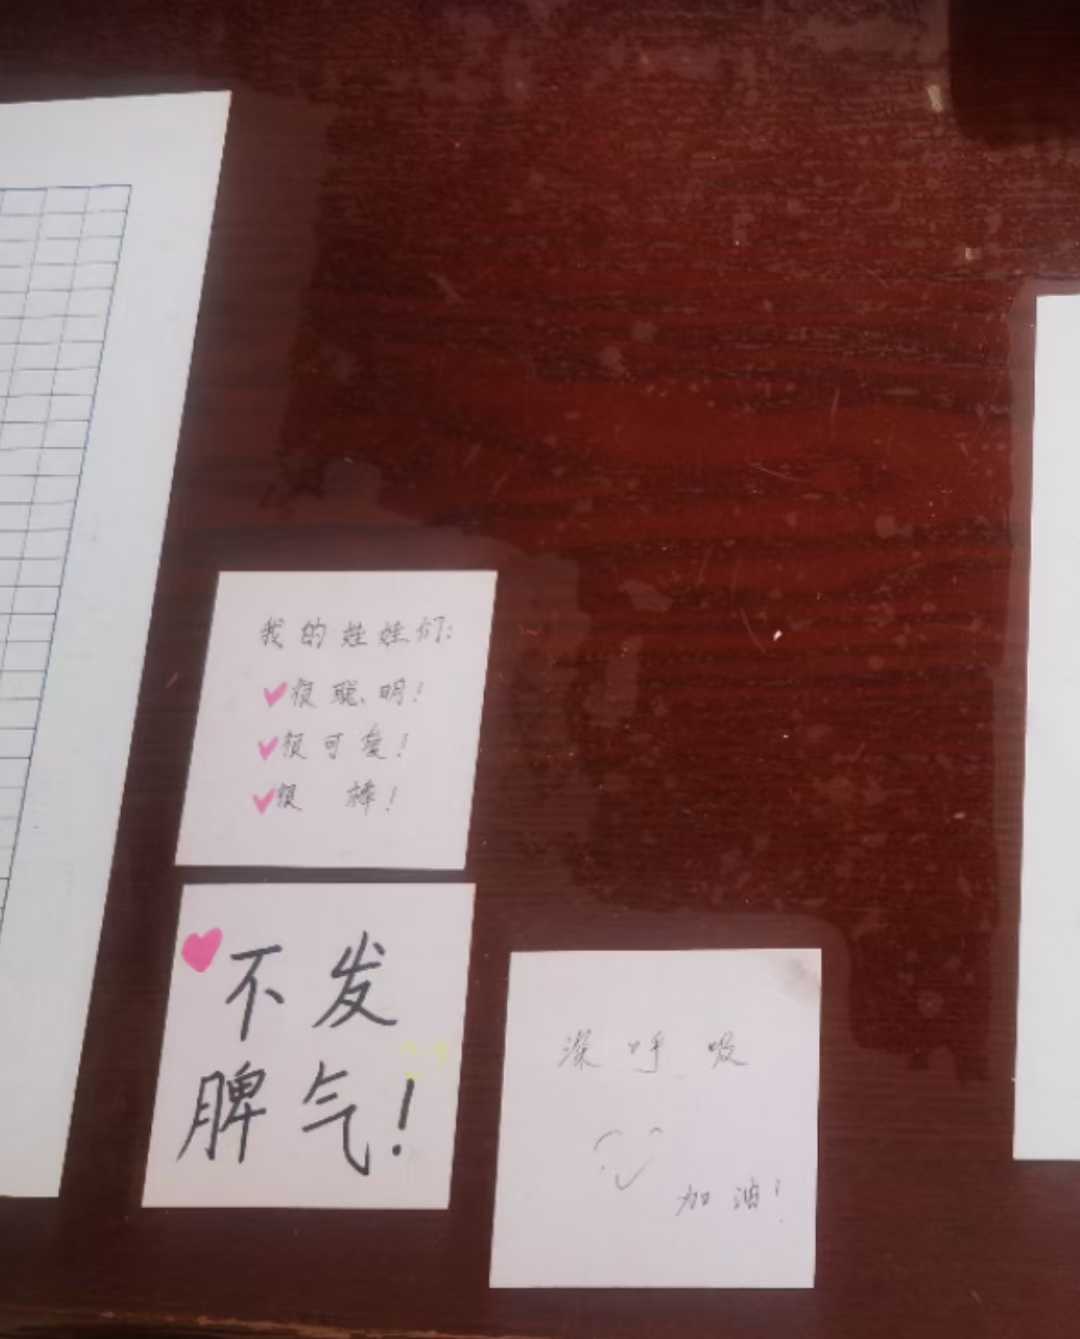 我的娃娃们:
很聪明!
很可爱!
很棒!
不发
脾气!
深呼吸
加油!